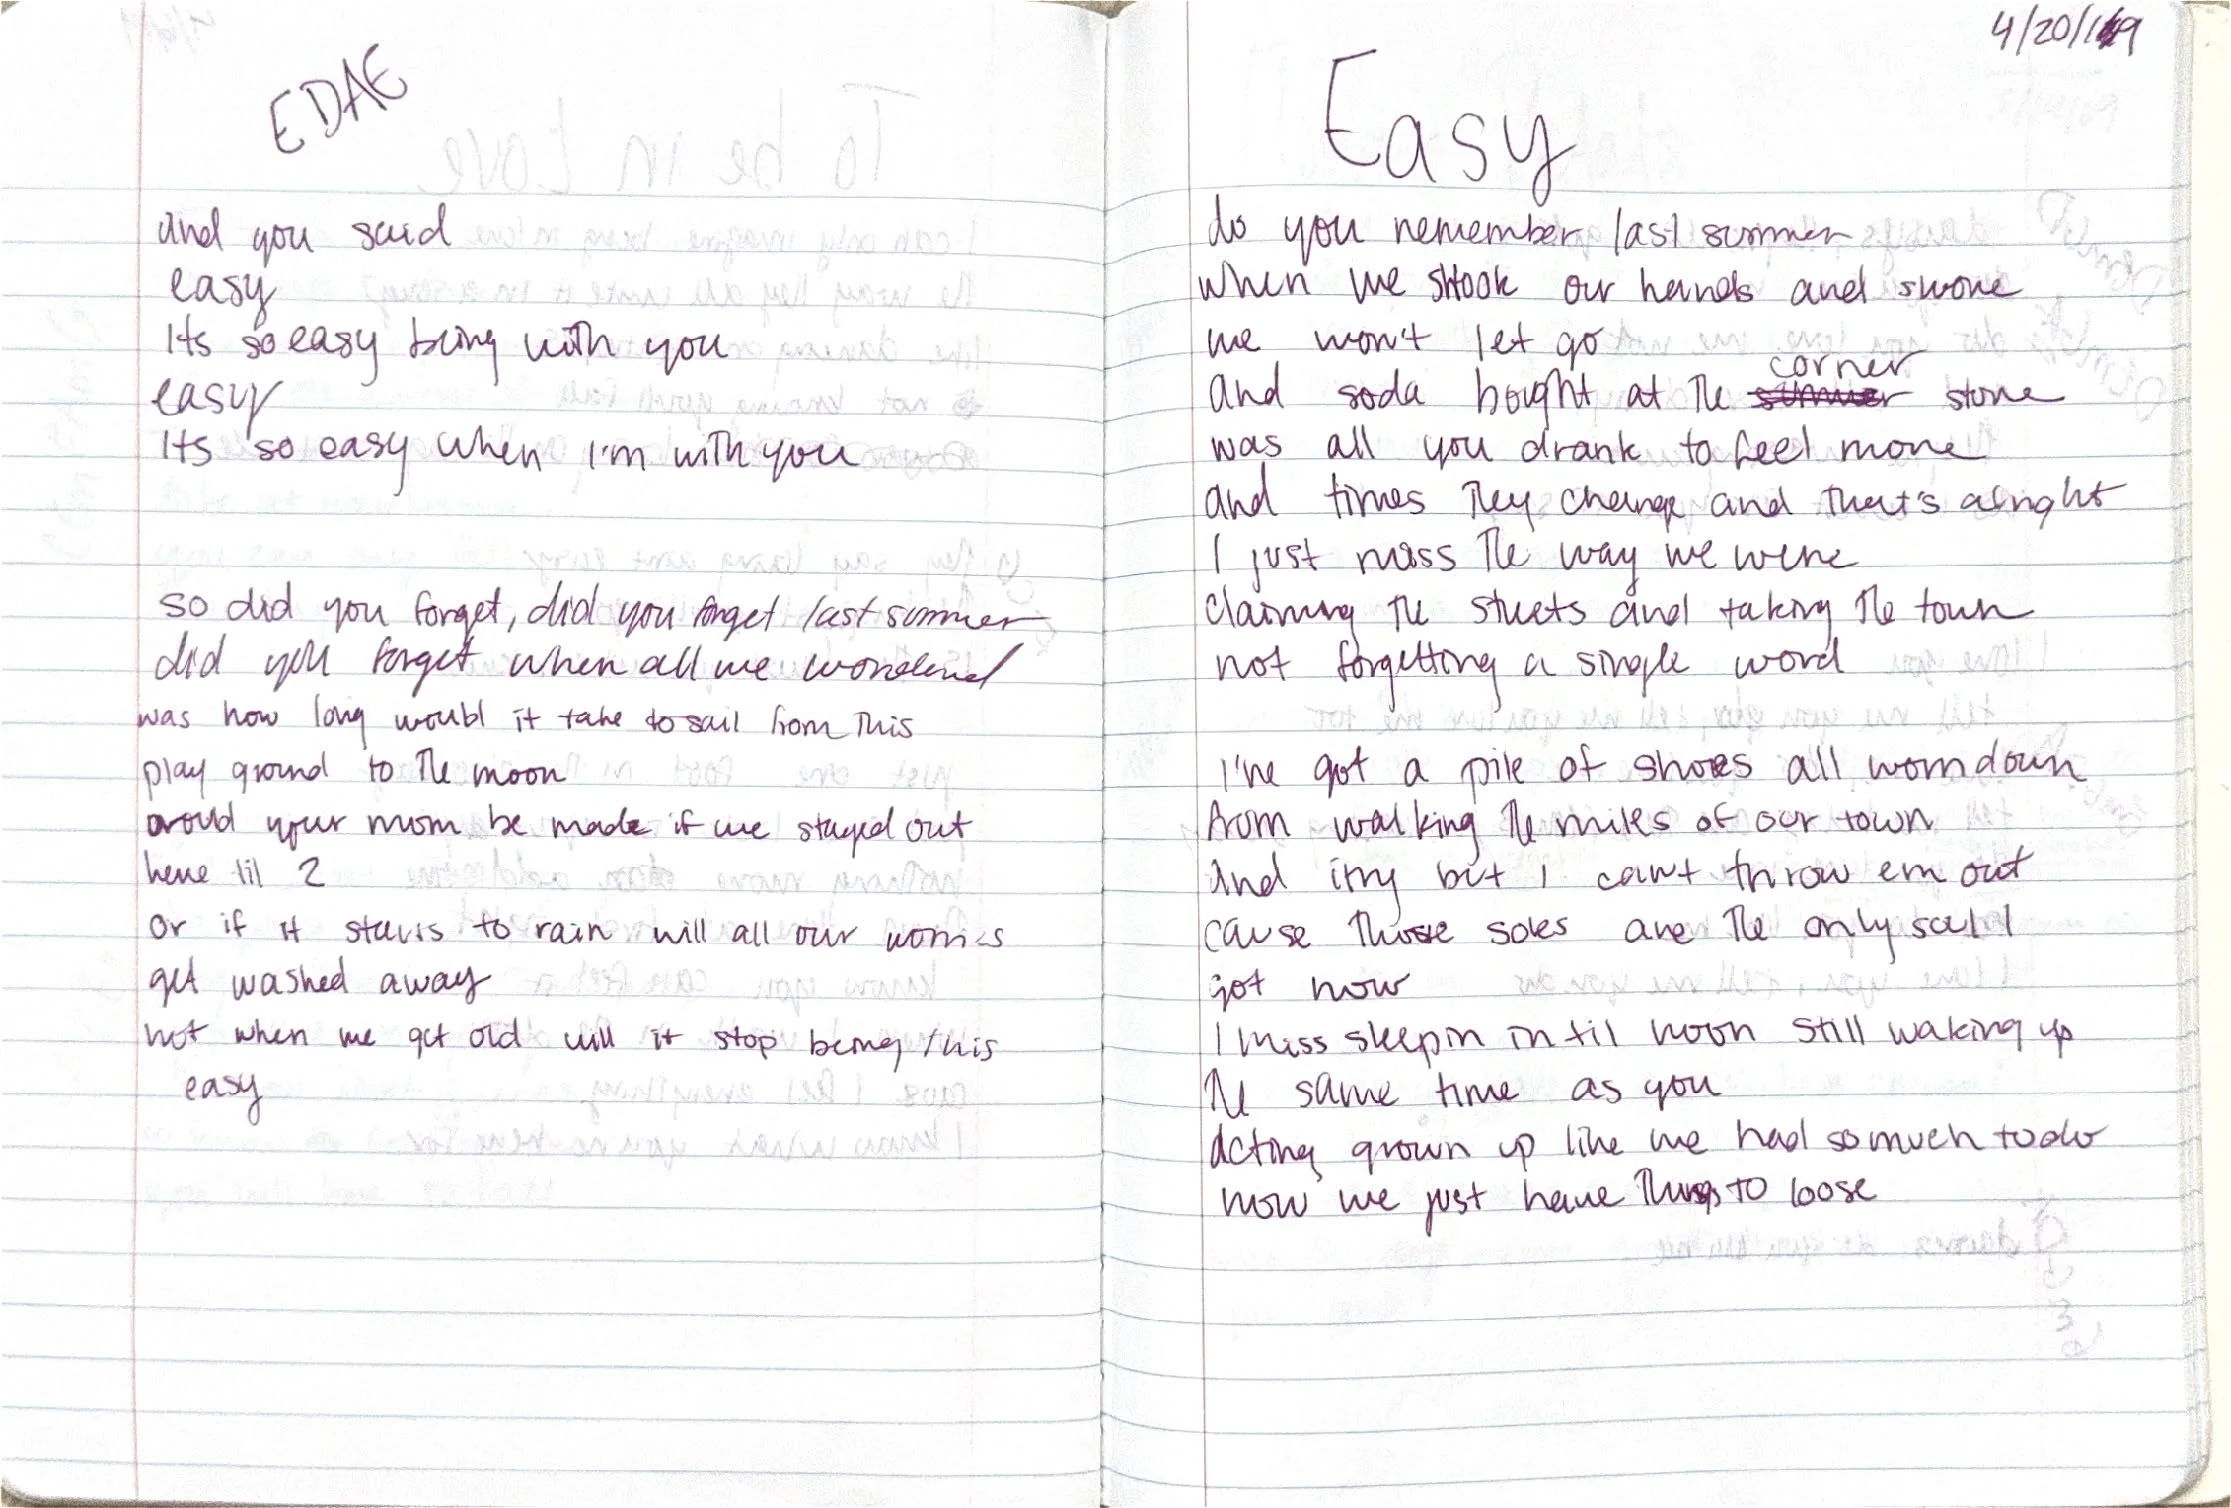 EDAE
and you said
easy
Its so easy being with you
easy
Its so easy when I'm with you
so did you forget, did you forget last summer
did you forget when all we wondered
was how long would it take to sail from this
play ground to the moon
would your mom be made if we stayed out
here til 2
or if it starts to rain will all our worries
get washed away
not when we get old will it stop being this
easy
4/20/19
Easy
do you remember last summer
when we shook our hands and swore
we won't let go
and soda bought at the corner store
was all you drank to feel more
and times they change and that's alright
I just miss the way we were
claiming the streets and taking the town
not forgetting a single word
I've got a pile of shoes all worn down
from walking the miles of our town
and i try but I can't throw em out
cause those soles are the only soul I
got now
I miss sleepin in til noon still waking up
the same time as you
acting grown up like we had so much to do
now we just have things to loose